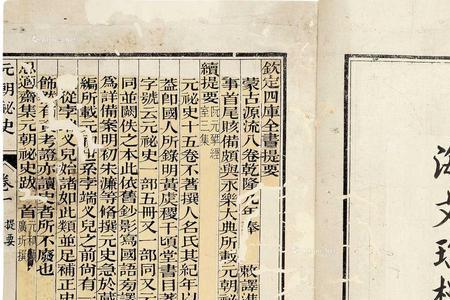 欽定四庫全書提要
蒙古源流八卷乾隆元年奉 敕譯進
事首尾賅備頗與永樂大典所載元朝祕
續提要 阮元揅經室三集
元祕史十五卷不著撰人名氏其紀年以
蓋卽國人所錄明黃虞稷千頃堂書目著
字號云元祕史一部五冊又一部同又元
同並闕佚之本此依舊鈔影寫國語旁譯
爲詳備案明初朱濂等修撰元史急於
編所載元世系孛端乂兒之前尚有一
從孛乂兒始諸如此類並足補正史
飾有考證亦讀史者所不廢也
適齋集元朝祕史跋一首 元和顧廣圻撰
元朝祕史 卷一 提要
海文